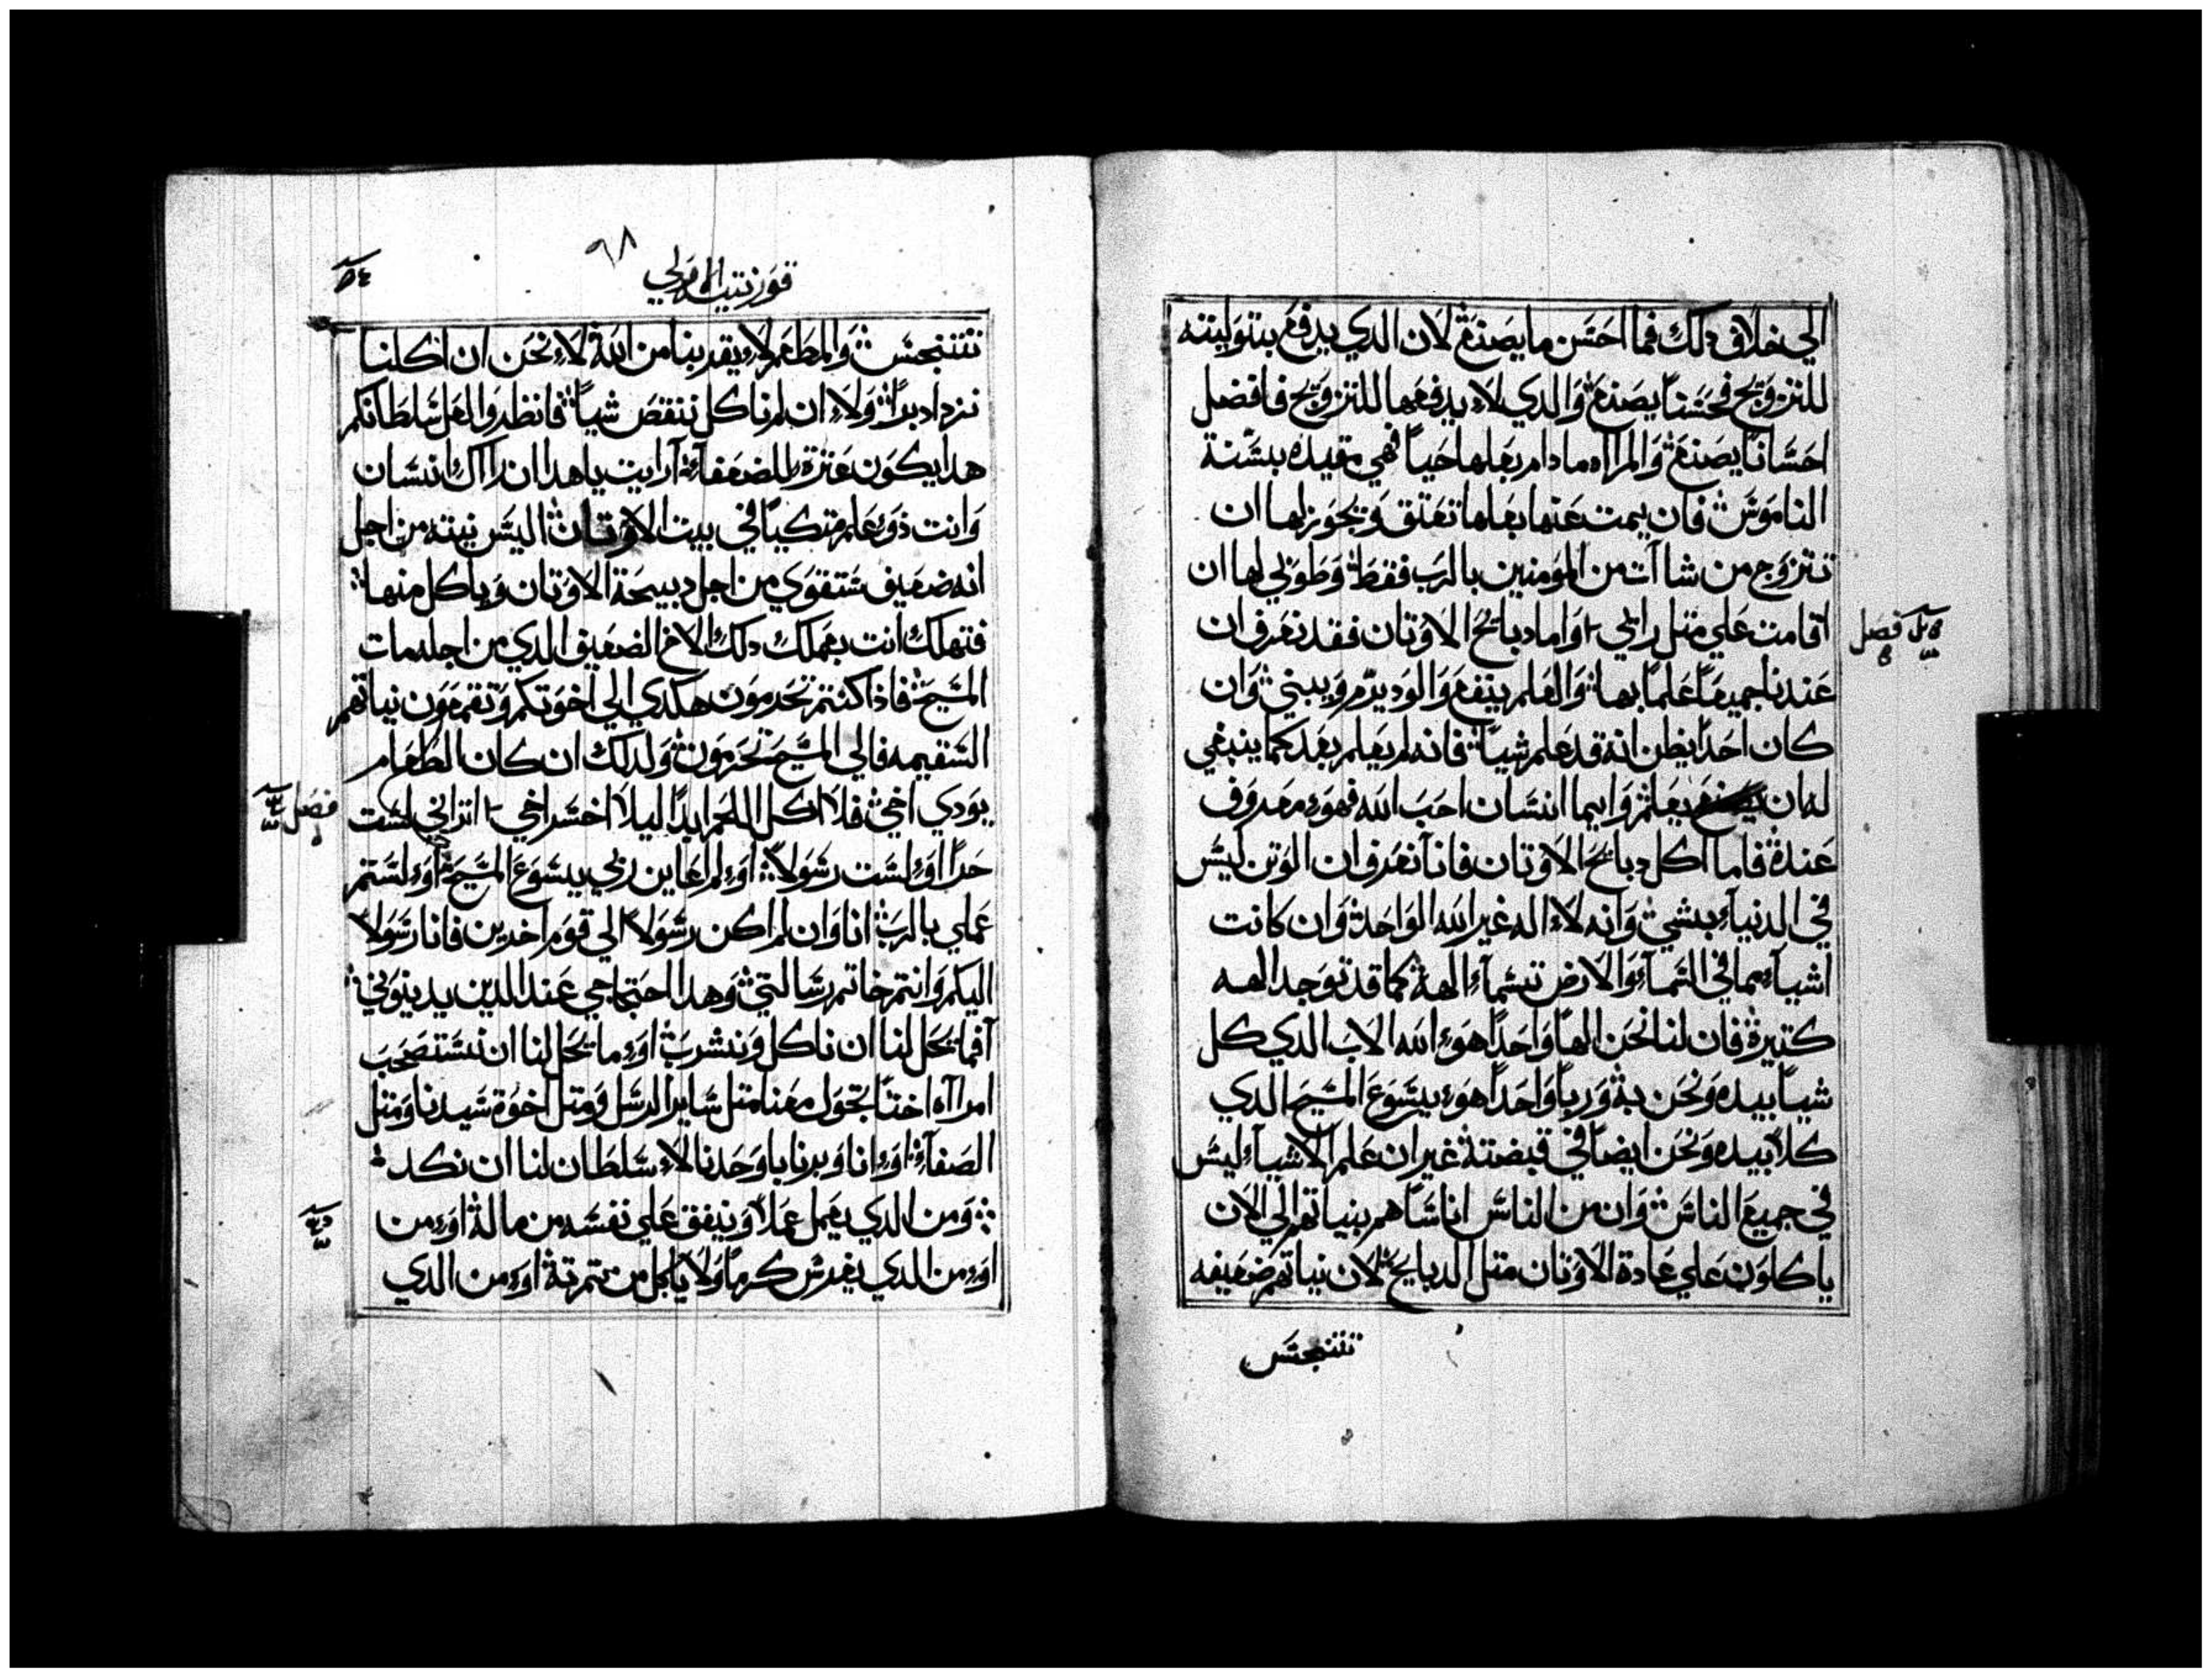 الي خلاف دلك فما احسن ما يصنع لان الدي يدفع بتوليته
للتزويج فحسنا يصنع والدي لا يدفعها للتزويج فافضل
احسانا يصنع والمرااه مادام بعلها حيا فهي مقيده بسنة
الناموس فان يمت عنها بعلها تعتق ويجوز لها ان
تتزوج من شاات من المومنين بالرب فقط وطوبي لها ان
اقامت علي متل رايي واما دبايح الاوتان فقد نعرف ان
عندنا جميعا علما بها والعلم ينفع والود يرم ويبني وان
كان احدا يظن انه قد علم شيا فانه لم يعلم بعد كما ينبغي
له ان يعلم وايما انسان احب الله فهو معروف
عنده فاما اكل دبايح الاوتان فانا نعرف ان الوتن ليس
في الدنيا بشي وانه لا اله غير الله الواحد وان كانت
اشياء مما في السماء والارض تسما الهة كما قد توجد الهه
كتيرة فان لنا نحن الها واحدا هو الله الاب الدي كل
شيا بيده ونحن به وربا واحدا هو يسوع المسيح الدي
كلا بيده ونحن ايضا في قبضته غير ان علم الاشياء ليس
في جميع الناس وان من الناس اناسا هم بنياتهم الي الان
ياكلون علي عادة الاوتان متل الدبايح لان نياتهم ضعيفه
تتنجس
فصل
قورنتيه الاولي
٩٨
٥٤
تتنجس والمطعم لا يقربنا من الله لا نحن ان اكلنا
نزداد برا ولا ان لم ناكل ننقص شيا فانظروا لعل سلطانكم
هدا يكون عترة للضعفاء ارايت ياهدا ان راك انسان
وانت ذو علم متكيا في بيت الاوتان اليس نيته من اجل
انه ضعيف ستقوي من اجل دبيحة الاوتان وياكل منها
فتهلك انت بعملك دلك الاخ الضعيف الدي من اجله مات
المسيح فاذا كنتم تجرمون هكدي الي اخوتكم وتقمعون نياتهم
السقيمه فالي المسيح تجرمون ولدلك ان كان الطعام
يودي اخي فلا اكل اللحم ابدا ليلا اخسر اخي اتراني لست
حرا او لست رسولا او لم اعاين ربي يسوع المسيح او لستم
عملي بالرب انا وان لم اكن رسولا الي قوم اخرين فانا رسولا
اليكم وانتم خاتم رسالتي وهدا احتجاجي عند الدين يدينوني
افما يحل لنا ان ناكل ونشرب او ما يحل لنا ان نستصحب
امرااه اختا تجول معنا متل ساير الرسل ومتل اخوة سيدنا ومتل
الصفا او انا وبرنابا وحدنا لا سلطان لنا ان نكد
ومن الدي يعمل عملا وينفق علي نفسه من ماله او من
او من الدي يغرس كرما ولا ياكل من تمرته او من الدي
فصل